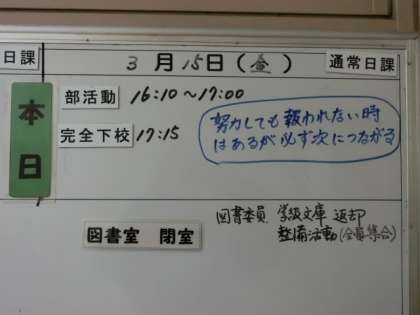 日課 3月15日(金) 通常日課
本日
部活動 16:10～17:00
完全下校 17:15
努力しても報われない時
はあるが必ず次につながる
図書室 閉室
図書委員 学級文庫 返却
整備活動(全員集合)